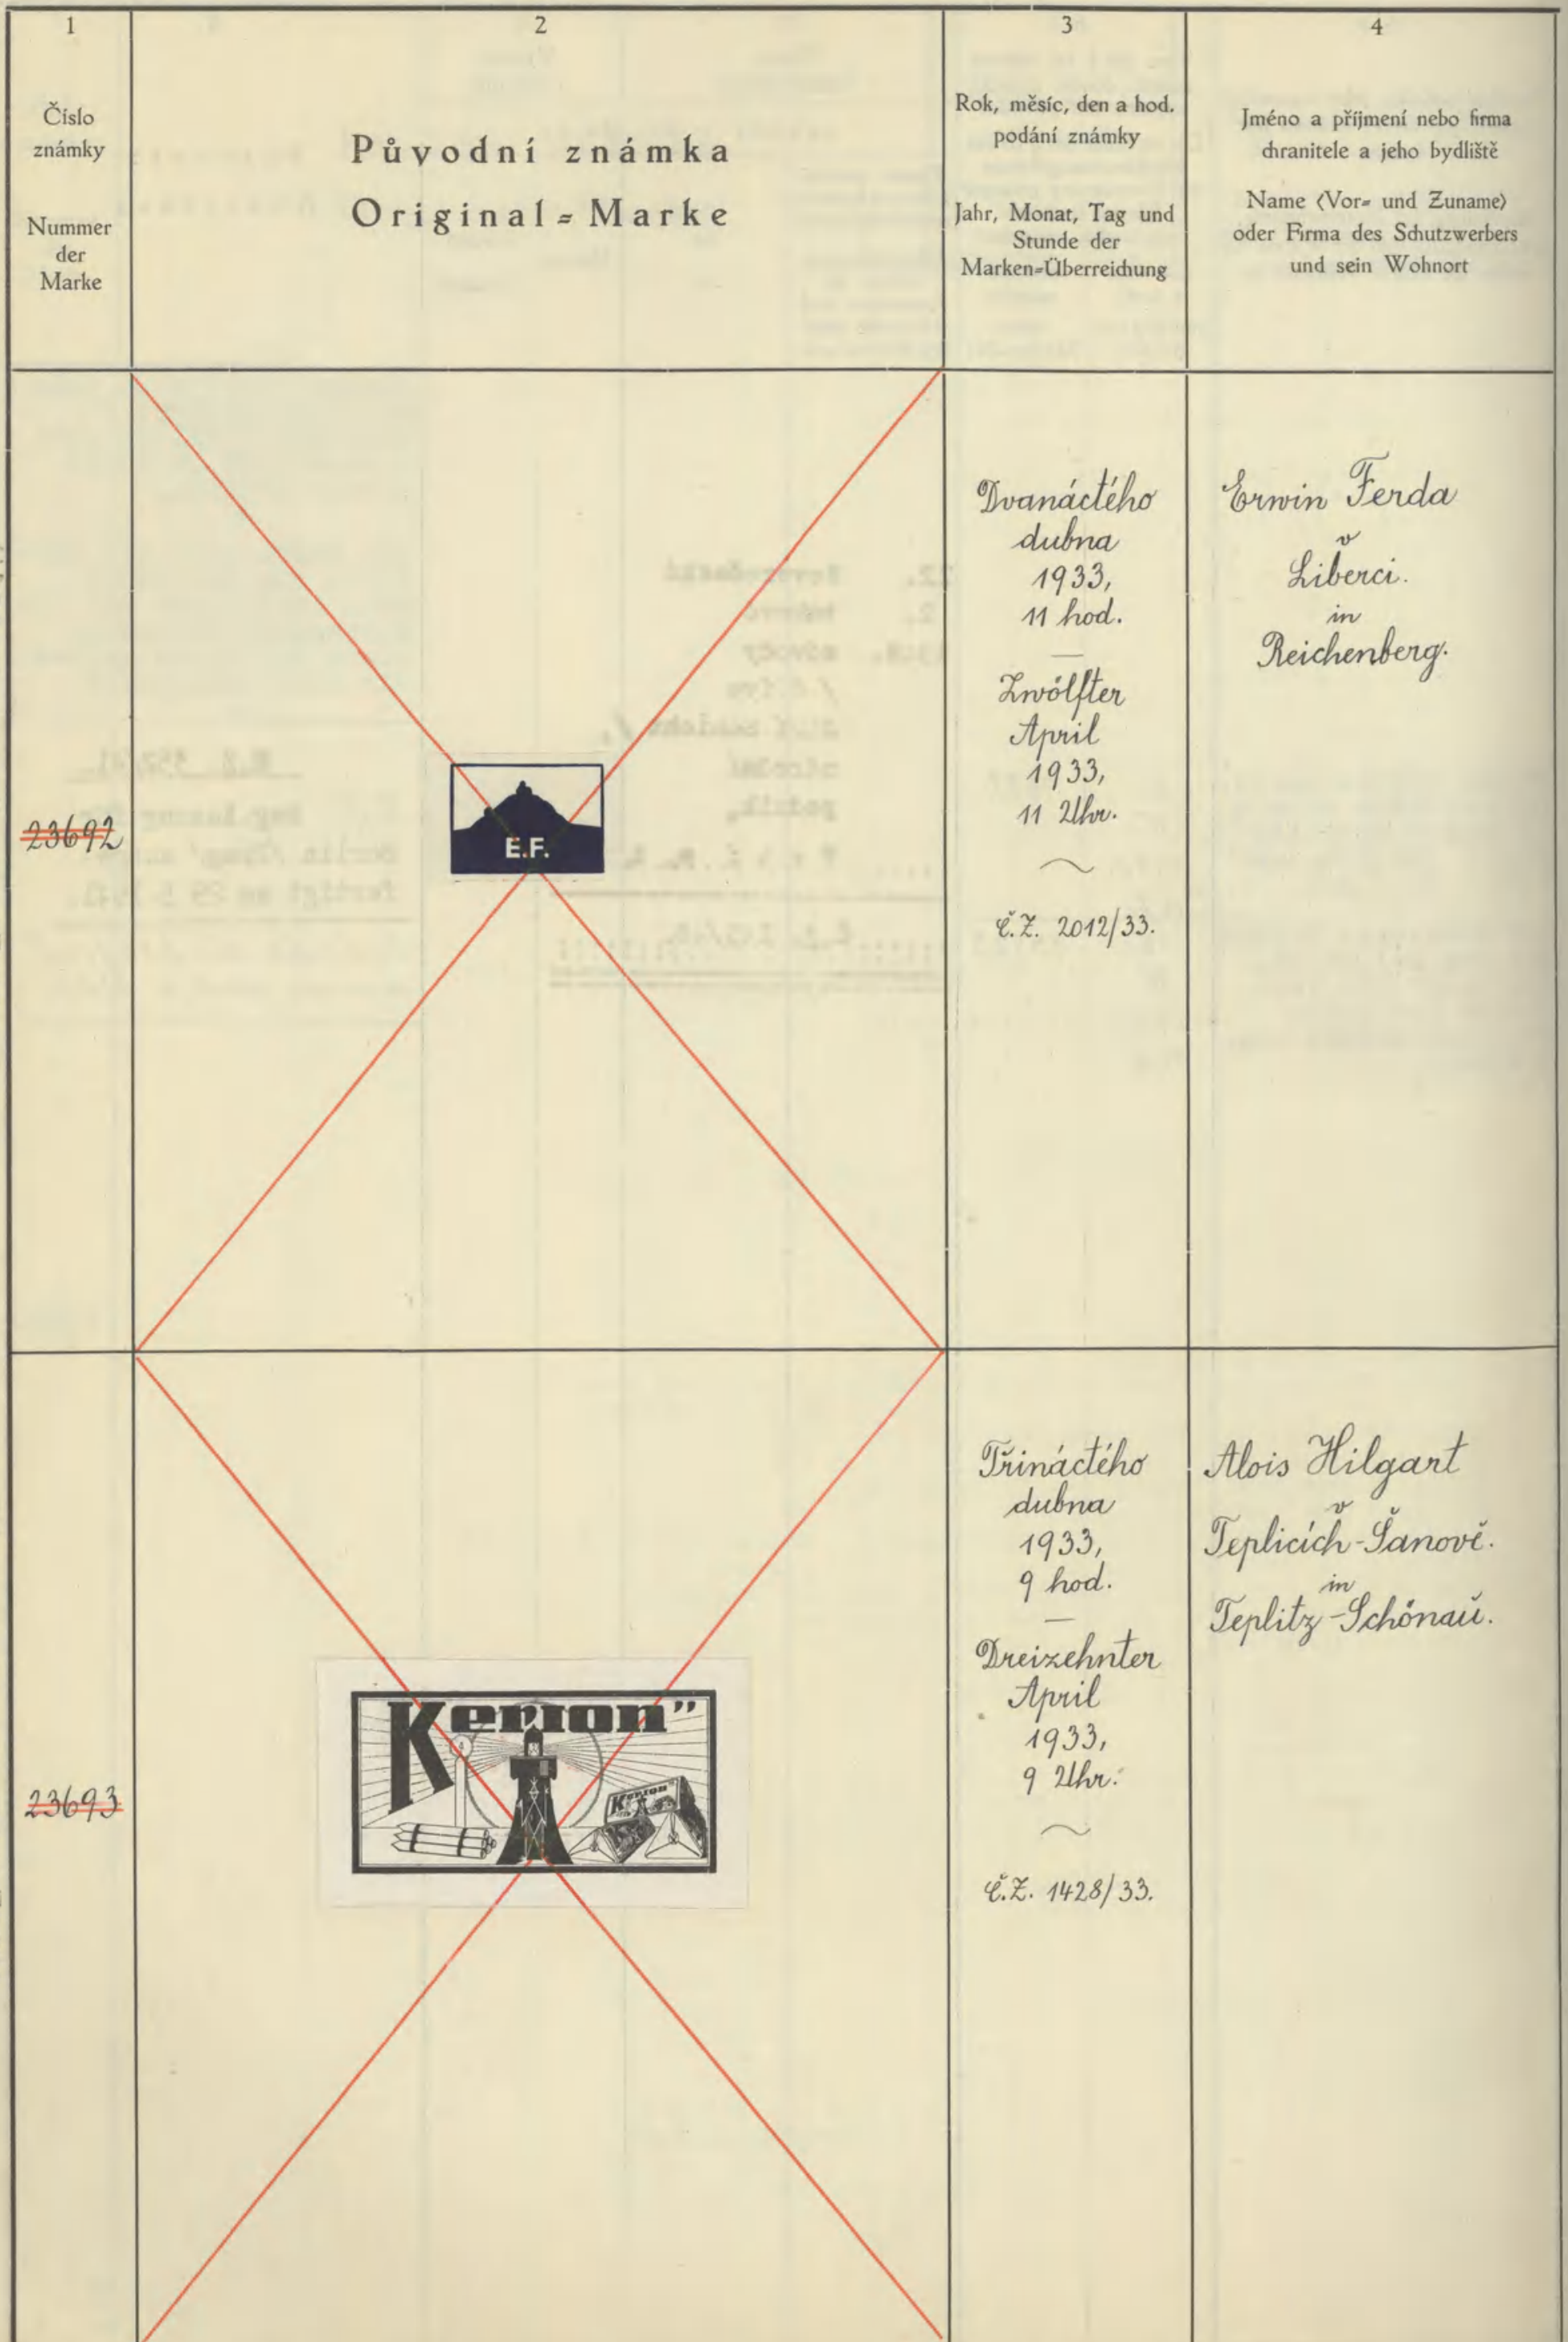 1
Číslo
známky
Nummer
der
Marke
2
Původní známka
Original=Marke
3
Rok, měsíc, den a hod.
podání známky
Jahr, Monat, Tag und
Stunde der
Marken=Überreichung
4
Jméno a příjmení nebo firma
chranitele a jeho bydliště
Name (Vor= und Zuname)
oder Firma des Schutzwerbers
und sein Wohnort
23692
E.F.
Dvanáctého
dubna
1933,
11 hod.
—
Zwölfter
April
1933,
11 Uhr.
Č.Z. 2012/33.
Erwin Ferda
v
Liberci.
in
Reichenberg.
23693
Kerion"
Kerion"
Třináctého
dubna
1933,
9 hod.
—
Dreizehnter
April
1933,
9 Uhr.
Č.Z. 1428/33.
Alois Hilgart
v
Teplicích-Šanově.
in
Teplitz-Schönau.